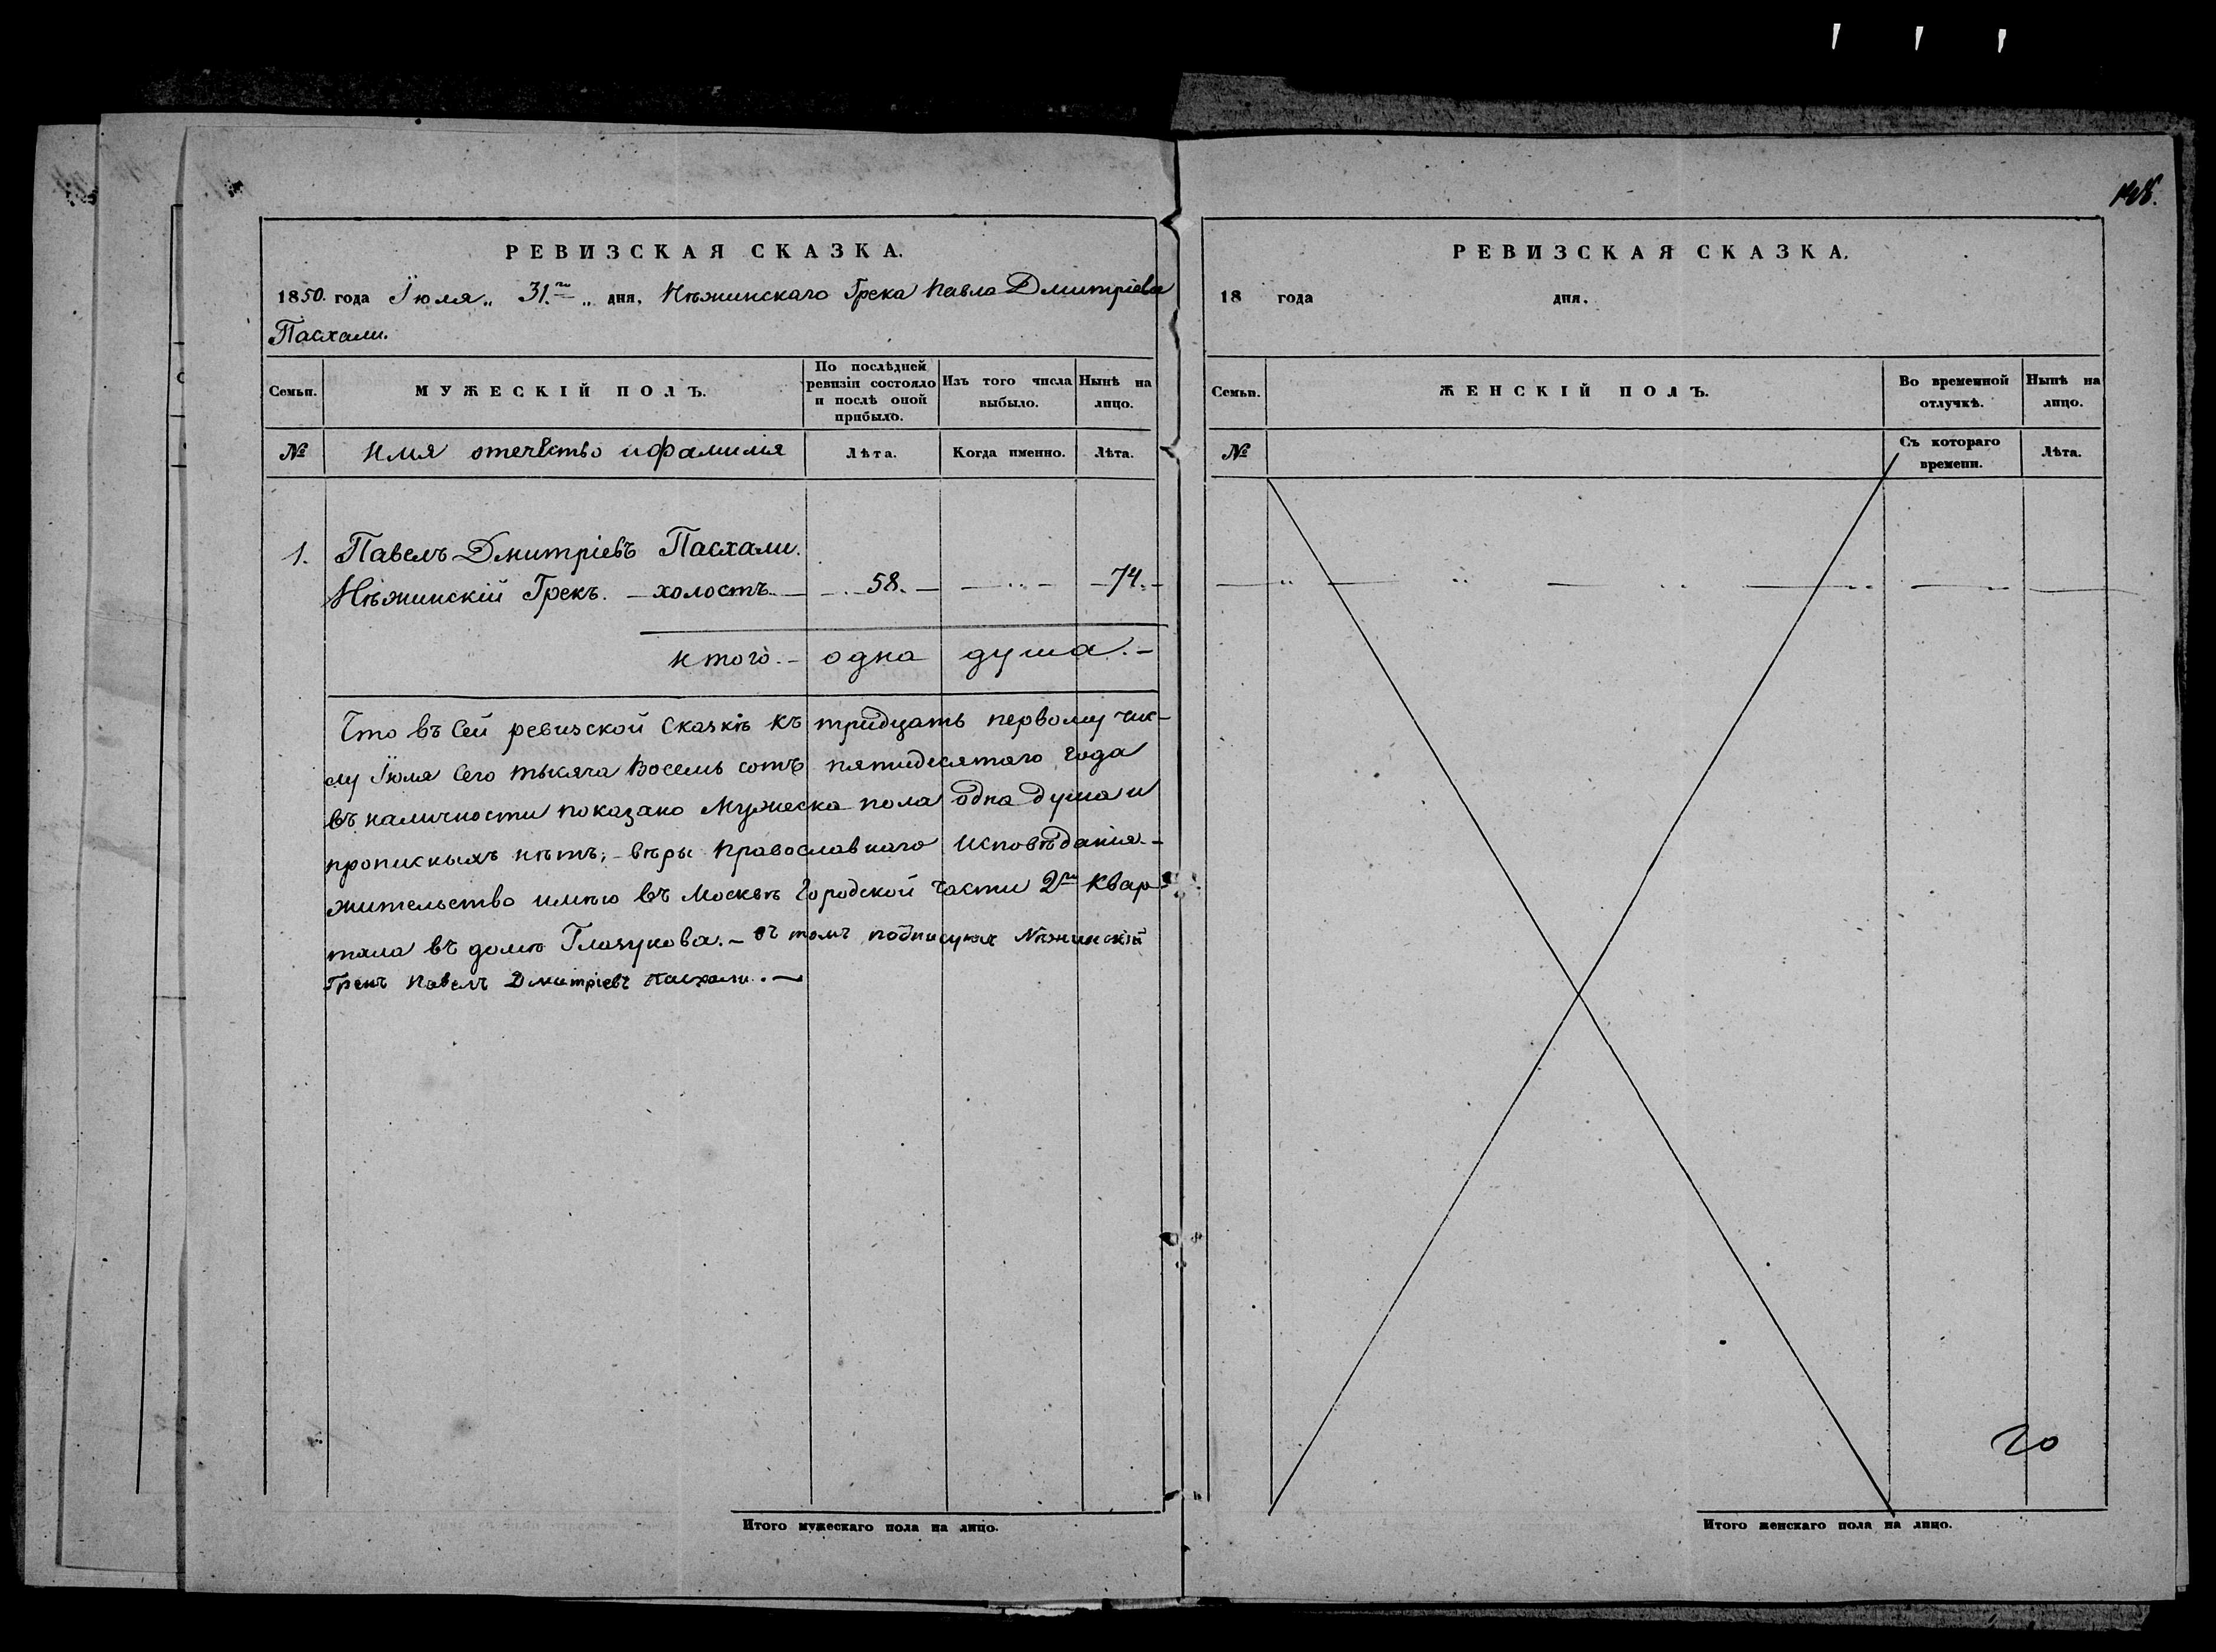 РЕВИЗСКАЯ СКАЗКА.
1850. года Їюля „ 31.го „ дня, Нѣжинскаго Грека Павла Дмитріева
Пасхали.
Семьи.
МУЖЕСКІЙ ПОЛЪ.
По послѣдней
ревизіи состояло
и послѣ оной
прибыло.
Изъ того числа
выбыло.
Нынѣ на
лицо.
№
Имя отечество и фамилія
Лѣта.
Когда именно.
Лѣта.
1. Павелъ Дмитріевъ Пасхали.
Нѣжинскій Грекъ. – холостъ. — 58. — – 74. –
Итого. – одна душа. –
Что въ сей ревизской Сказкѣ къ тридцать первому чис-
лу Їюля сего тысяча восемь сотъ пятидесятаго года
въ наличности показано Мужеска пола одна душа и
прописныхъ нѣтъ; – вѣры православнаго Исповѣданія. –
жительство имѣю въ Москвѣ Городской части 2го квар-
тала въ домѣ Глазунова. – въ томъ подписуюсь Нѣжинскій
Грекъ Павелъ Дмитріевъ Пасхали. —
Итого мужескаго пола на лицо.
РЕВИЗСКАЯ СКАЗКА.
18 года дня.
Семьи.
ЖЕНСКІЙ ПОЛЪ.
Во временной
отлучкѣ.
Нынѣ на
лицо.
№
Съ котораго
времени.
Лѣта.
20
Итого женскаго пола на лицо.